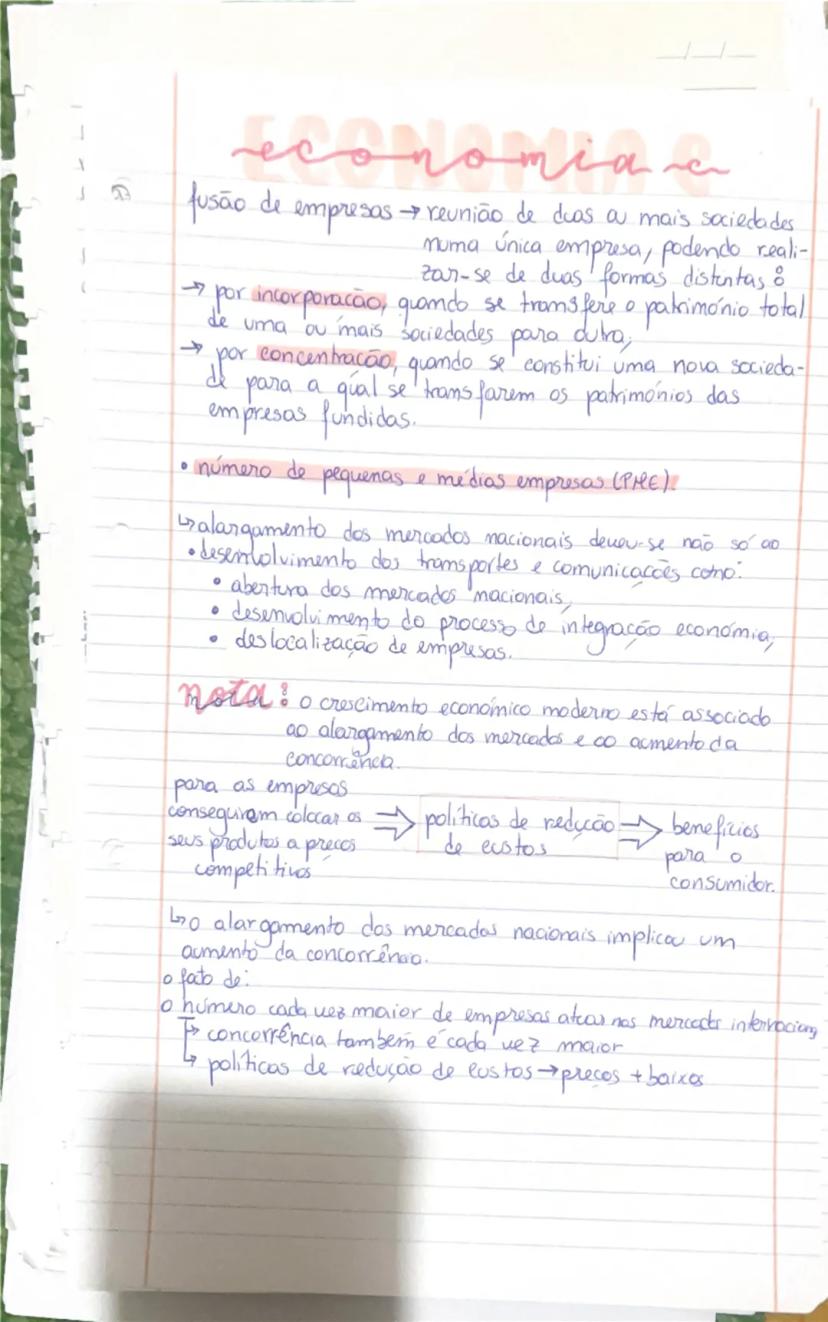 economia
fusão de empresas → reunião de duas ou mais sociedades
numa única empresa, podendo reali-
zar-se de duas formas distintas:
→ por incorporação, quando se transfere o património total
de uma ou mais sociedades para outra;
→ por concentração, quando se constitui uma nova socieda-
de para a qual se transfarem os patrimónios das
empresas fundidas.
• número de pequenas e médias empresas (PME).
↳ alargamento dos mercados nacionais deveu-se não só ao
• desenvolvimento dos transportes e comunicações como:
• abertura dos mercados nacionais,
• desenvolvimento do processo de integração económia,
• deslocalização de empresas.
nota: o crescimento económico moderno está associado
ao alargamento dos mercados e ao aumento da
concorrência.
para as empresas
conseguirem colocar os
seus produtos a preços
competitivos
⇒ políticas de redução
de custos
⇒ benefícios
para o
consumidor.
↳ o alargamento dos mercados nacionais implicou um
aumento da concorrência.
o fato de:
o número cada vez maior de empresas nos mercados
↳ concorrência também é cada vez maior
↳ políticas de redução de custos → preços + baixos